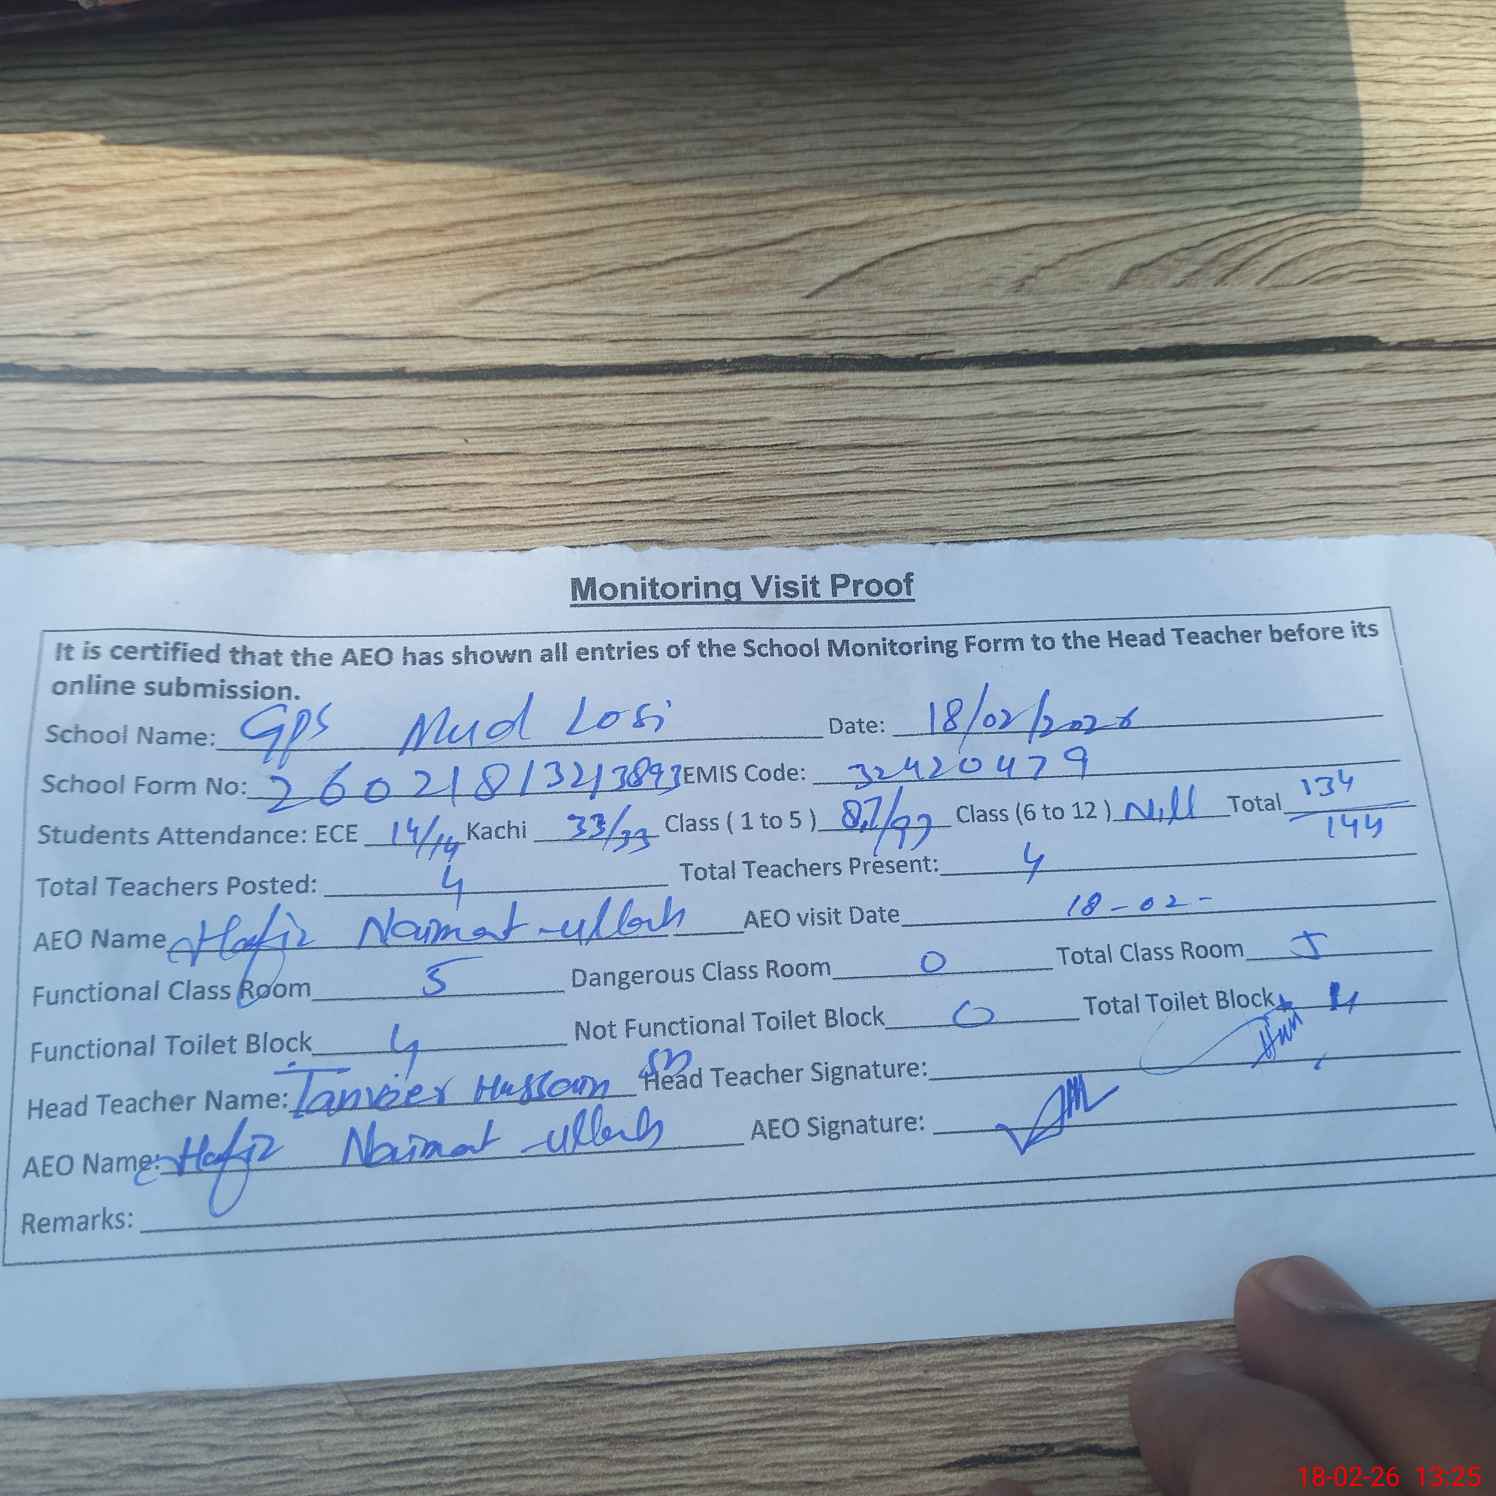 Monitoring Visit Proof
It is certified that the AEO has shown all entries of the School Monitoring Form to the Head Teacher before its
online submission.
School Name: GPS Mud Losi Date: 18/02/2026
School Form No: 26021813213893 EMIS Code: 32420479
Students Attendance: ECE 14/14 Kachi 33/33 Class ( 1 to 5 ) 87/97 Class (6 to 12 ) Nill Total 134/144
Total Teachers Posted: 4 Total Teachers Present: 4
AEO Name Hafiz Naimat-ullah AEO visit Date 18-02-
Functional Class Room 5 Dangerous Class Room 0 Total Class Room 5
Functional Toilet Block 4 Not Functional Toilet Block 0 Total Toilet Block 4
Head Teacher Name: Tanveer Hussain Head Teacher Signature:
AEO Name: Hafiz Naimat-ullah AEO Signature:
Remarks:
18-02-26 13:25